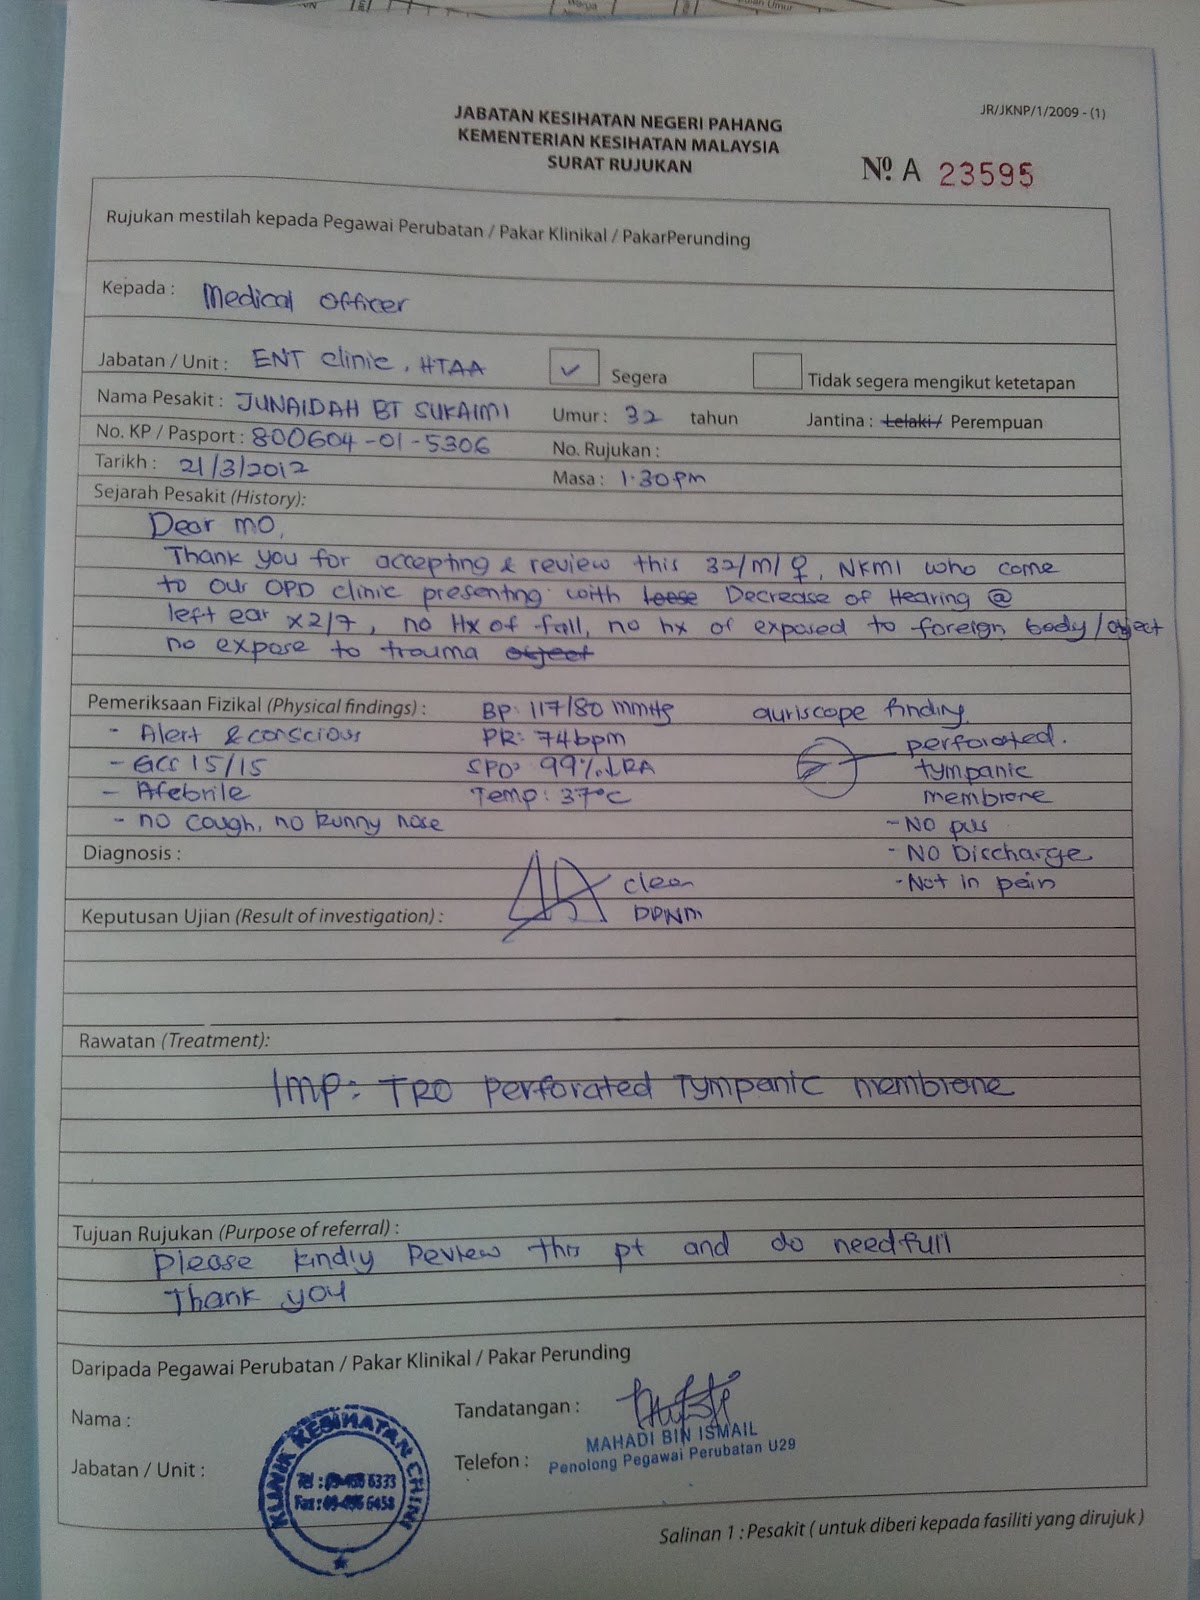 JR/JKNP/1/2009 - (1)
JABATAN KESIHATAN NEGERI PAHANG
KEMENTERIAN KESIHATAN MALAYSIA
SURAT RUJUKAN
Nº A 23595
Rujukan mestilah kepada Pegawai Perubatan / Pakar Klinikal / PakarPerunding
Kepada : Medical Officer
Jabatan / Unit : ENT clinic, HTAA ✓ Segera Tidak segera mengikut ketetapan
Nama Pesakit : JUNAIDAH BT SUKAIMI Umur : 32 tahun Jantina : Lelaki / Perempuan
No. KP / Pasport : 800604-01-5306 No. Rujukan :
Tarikh : 21/3/2012 Masa : 1.30pm
Sejarah Pesakit (History):
Dear MO,
Thank you for accepting & review this 32/M/♀, NKMI who come
to our OPD clinic presenting with loose Decrease of Hearing @
left ear x2/7, no Hx of fall, no hx of exposed to foreign body/object
no expose to trauma object
Pemeriksaan Fizikal (Physical findings) : BP: 117/80 mmHg auriscope finding
- Alert & conscious PR: 74bpm perforated.
- GCS 15/15 SPO2 99% ↓RA tympanic
- Afebrile Temp: 37°C membrane
- no cough, no runny nose - NO pus
Diagnosis : - NO Discharge
clear - Not in pain
Keputusan Ujian (Result of investigation) : DPNM
Rawatan (Treatment):
IMP: TRO Perforated Tympanic membrane
Tujuan Rujukan (Purpose of referral) :
please kindly Review this pt and do needfull
Thank you
Daripada Pegawai Perubatan / Pakar Klinikal / Pakar Perunding
Nama : Tandatangan :
MAHADI BIN ISMAIL
Jabatan / Unit : Telefon : Penolong Pegawai Perubatan U29
KLINIK KESIHATAN CHINI
Salinan 1 : Pesakit ( untuk diberi kepada fasiliti yang dirujuk )